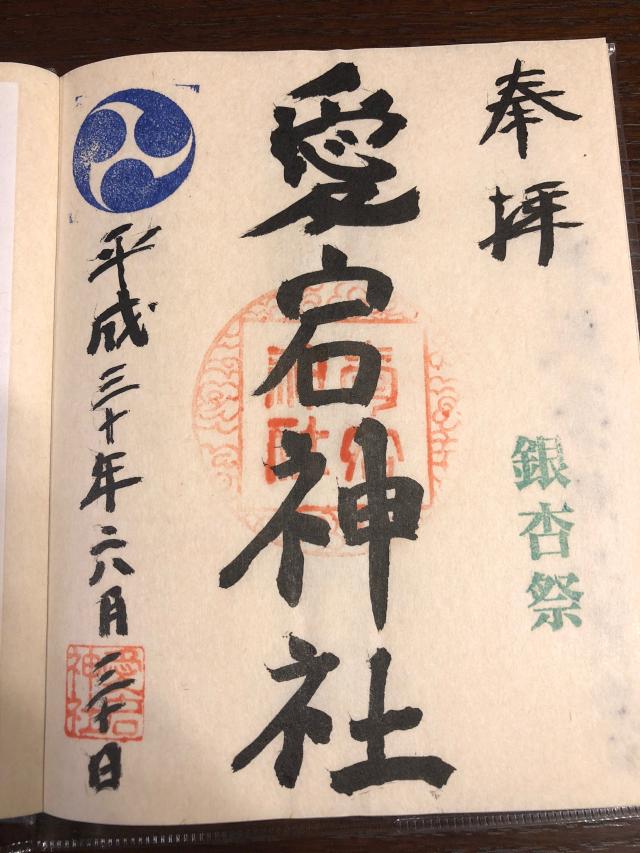 奉拝
銀杏祭
愛宕神社
平成三十年六月三十日
愛宕神社